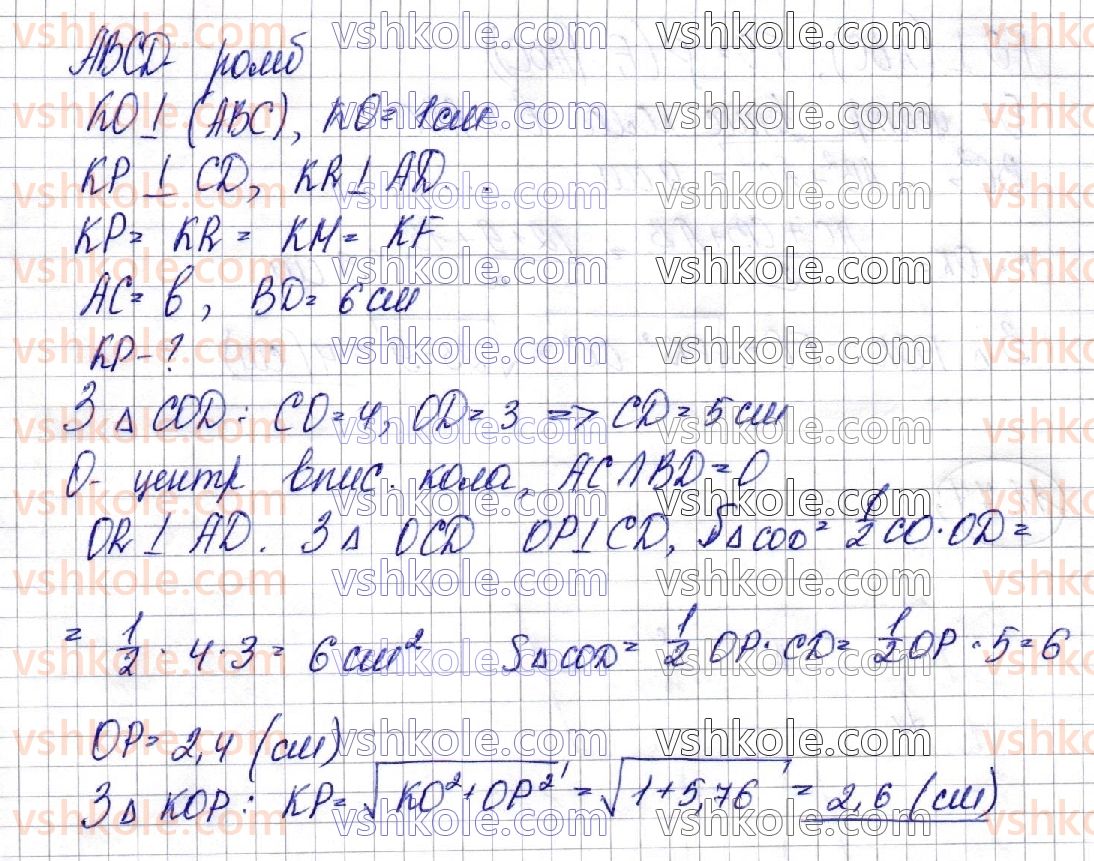 ABCD - ромб
KO ⊥ (ABC), KO = 1 см
KP ⊥ CD, KR ⊥ AD.
KP = KR = KM = KF
AC = 8, BD = 6 см
KP - ?
З △ COD: CO = 4, OD = 3 => CD = 5 см
O - центр впис. кола, AC ∩ BD = O
OR ⊥ AD. З △ OCD OP ⊥ CD, S△COD = 1/2 CO · OD =
= 1/2 · 4 · 3 = 6 см² S△COD = 1/2 OP · CD = 1/2 OP · 5 = 6
OP = 2,4 (см)
З △ KOP: KP = √(KO² + OP²) = √(1 + 5,76) = 2,6 (см)
vshkole.com